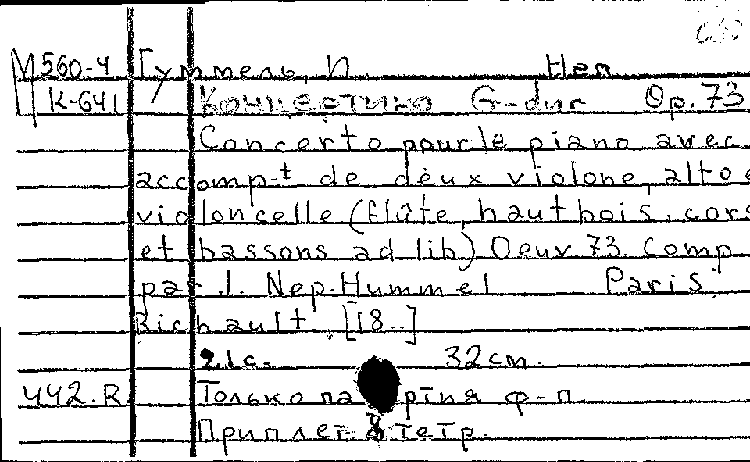 М560-4 Гуммель, И. Нем
К-641 Концертино G-dur Op. 73
Concerto pour le piano avec
accomp-t de deux violone, alto e
violoncelle (flûte, hautbois, cors
et bassons ad lib) Oeuv. 73. Comp
par J. Nep. Hummel Paris.
Richault [18..]
21с. 32 cm.
442.R. Только партия ф-п
Приплет. 8 тетр.